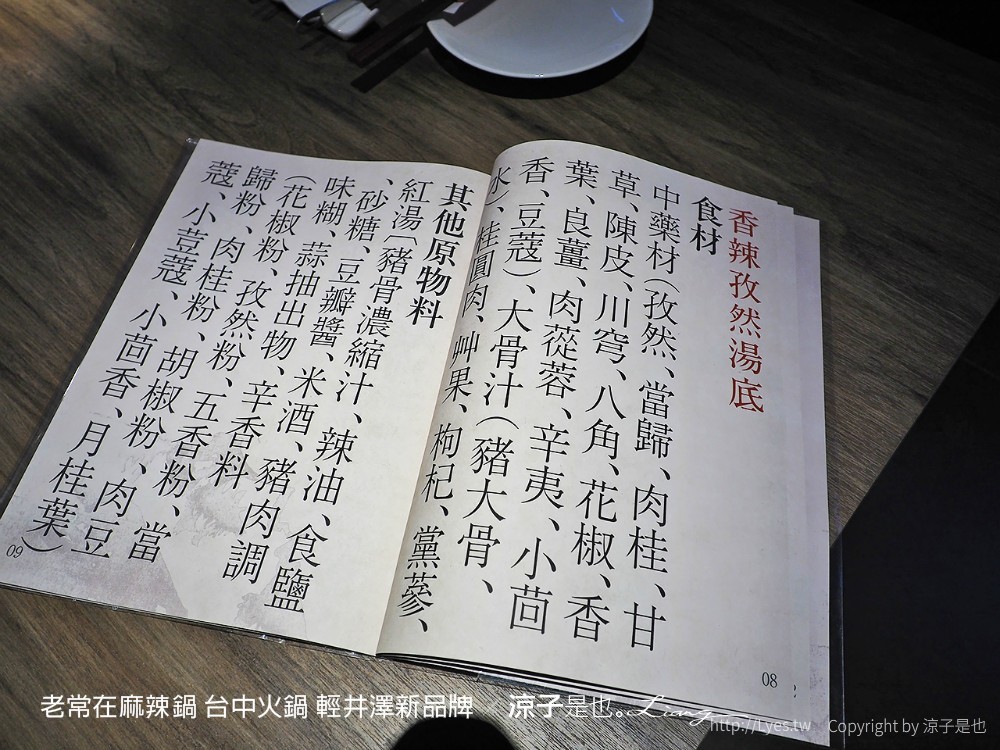 香辣孜然湯底
食材
中藥材(孜然、當歸、肉桂、甘
草、陳皮、川穹、八角、花椒、香
葉、良薑、肉蓯蓉、辛夷、小茴
香、豆蔻)、大骨汁(豬大骨、
水)、桂圓肉、艸果、枸杞、黨蔘、
08
其他原物料
紅湯(豬骨濃縮汁、辣油、食鹽
、砂糖、豆瓣醬、米酒、豬肉調
味糊、蒜抽出物、辛香料
(花椒粉、孜然粉、五香粉、當
歸粉、肉桂粉、胡椒粉、肉豆
蔻、小荳蔻、小茴香、月桂葉)
09
老常在麻辣鍋 台中火鍋 輕井澤新品牌 涼子是也。Ling
http://Lyes.tw Copyright by 涼子是也